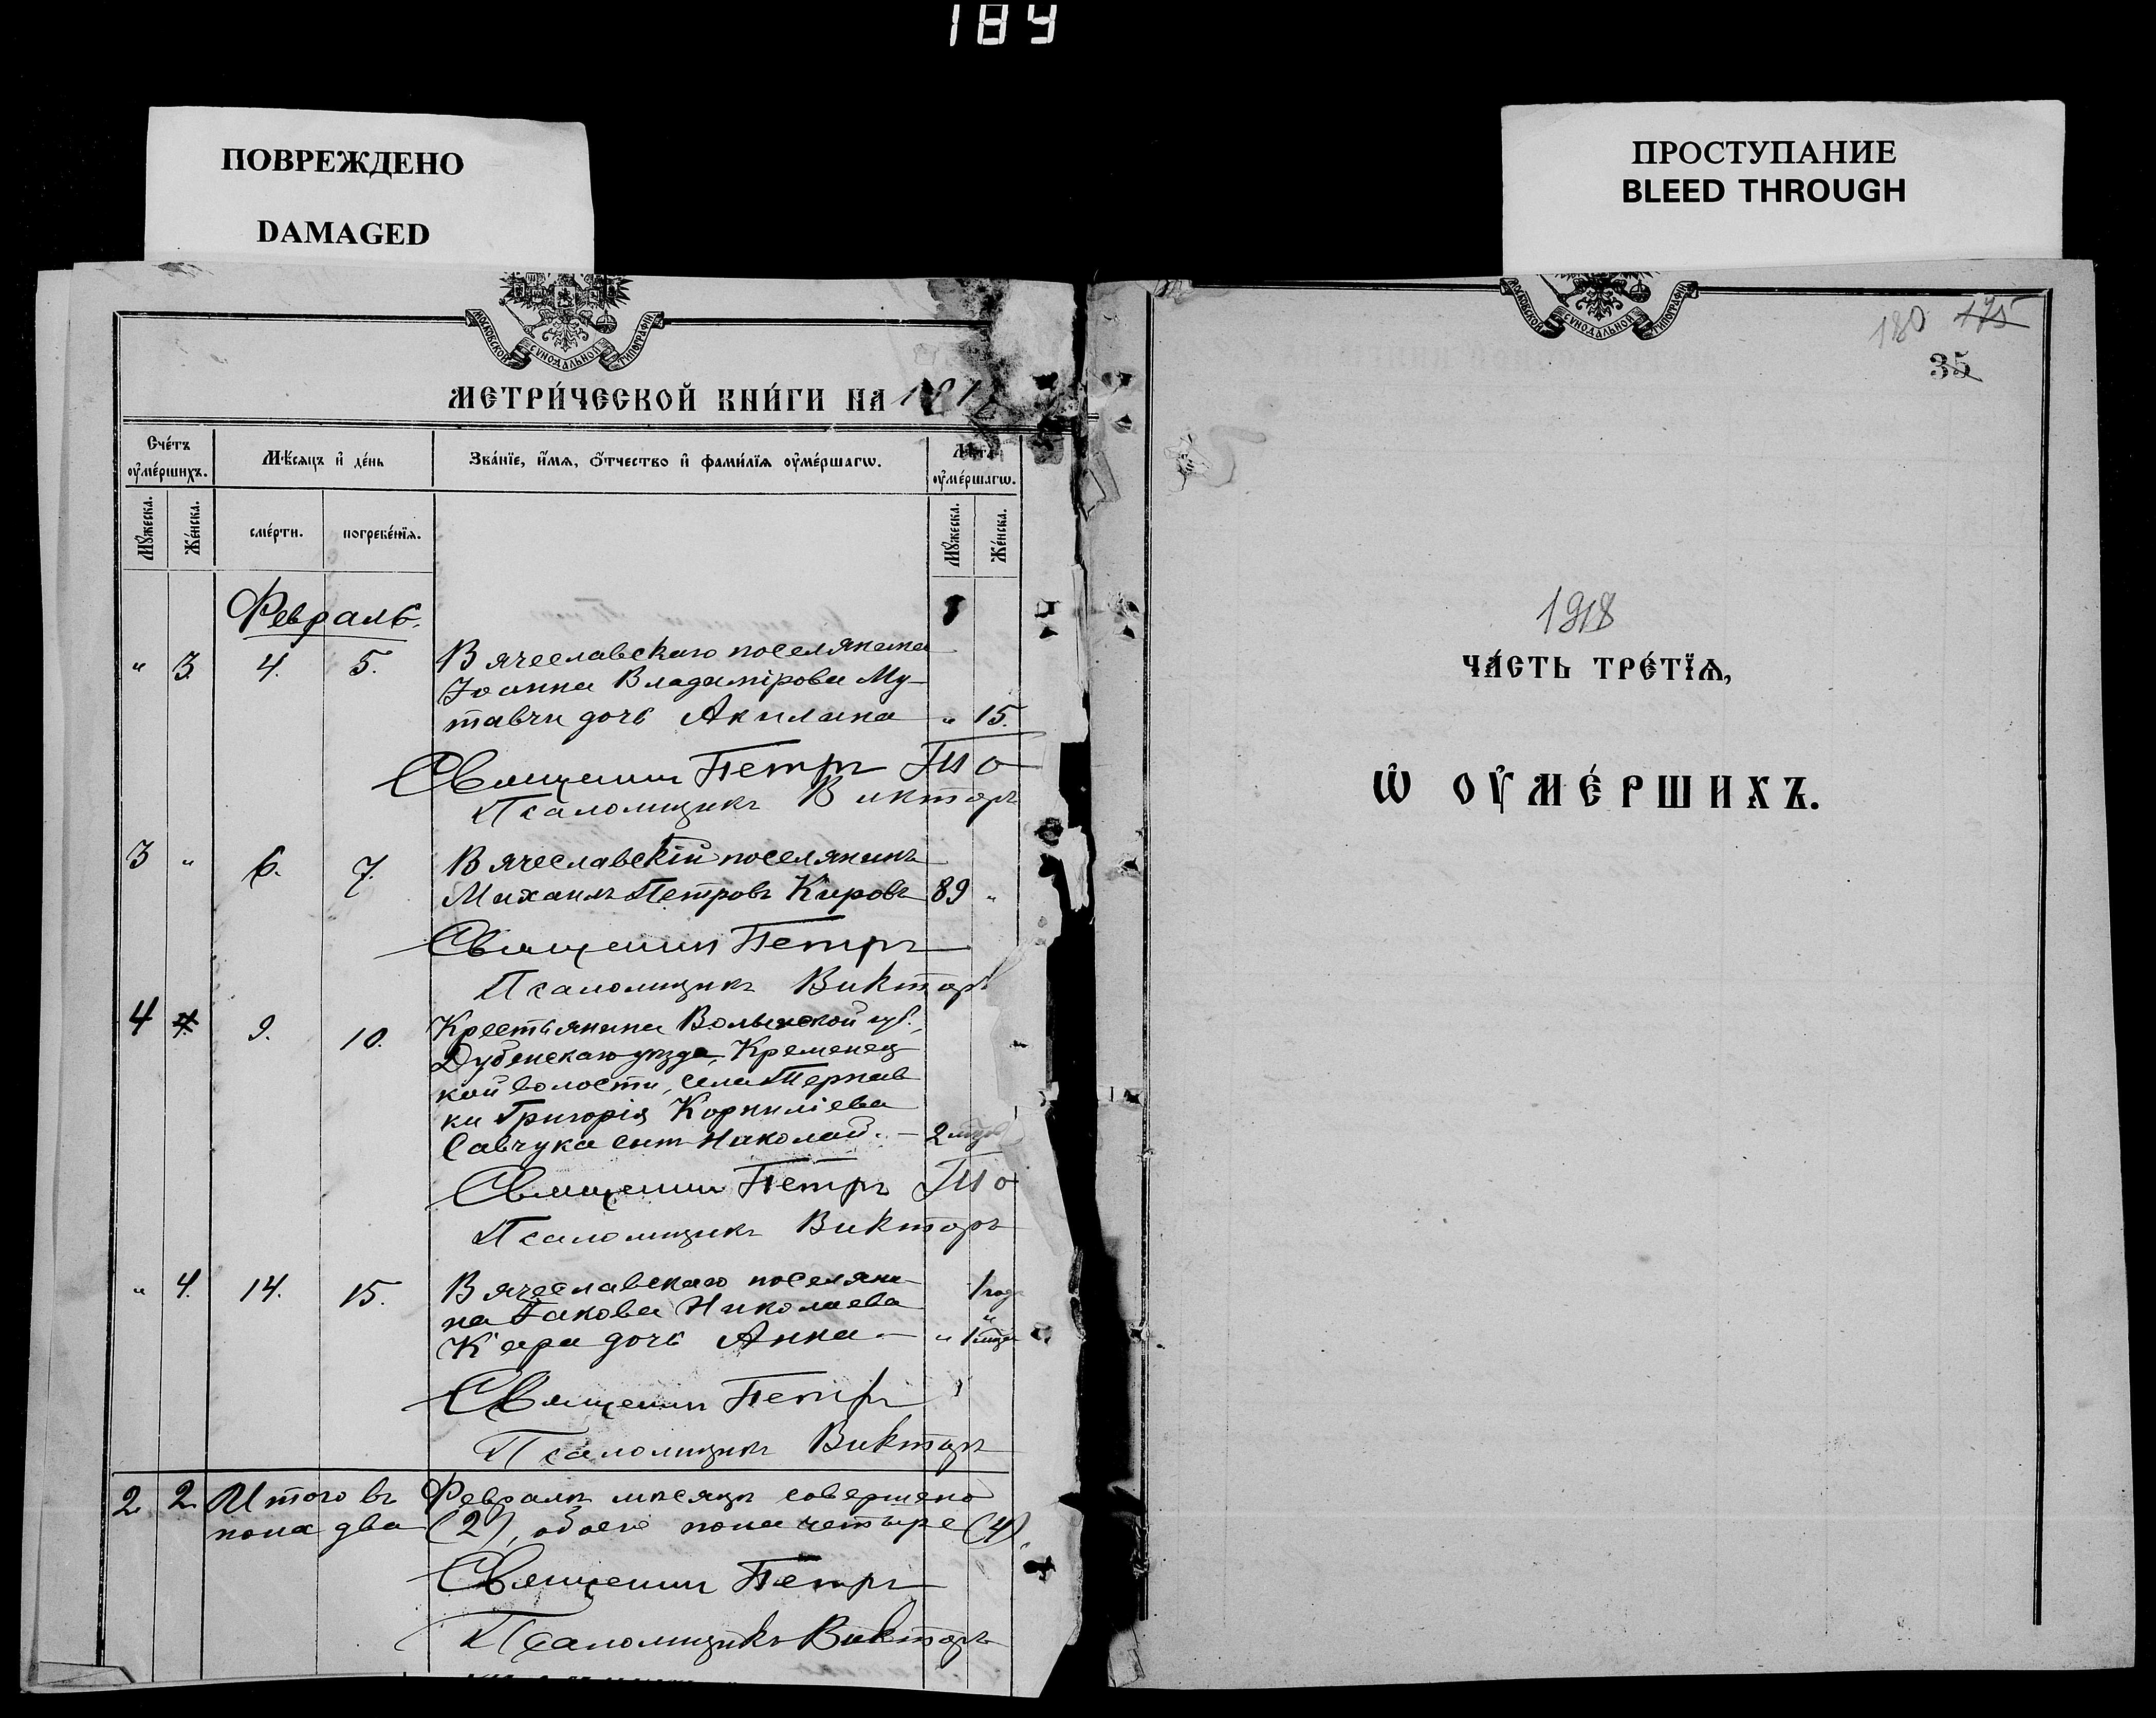 184
ПОВРЕЖДЕНО
DAMAGED
ПРОСТУПАНИЕ
BLEED THROUGH
МОСКОВСКОЙ СѴНОДАЛЬНОЙ ТИПОГРАФІИ
МЕТРИ́ЧЕСКОЙ КНИ́ГИ НА 191
Сче́тъ оу҆ме́ршихъ.
Мѣ́сяцъ и҆ де́нь
Зва́нїе, и҆́мя, ѻ҆́тчество и҆ фами́лїя оу҆ме́ршагѡ.
Лѣта оу҆ме́ршагѡ.
Мꙋ́жеска.
Же́нска.
сме́рти.
погребе́нїя.
Мꙋ́жеска.
Же́нска.
Февраль.
" 3. 4. 5. Вячеславскаго поселянина
Іоанна Владимірова Му-
тавчи дочь Акилина " 15.
Священник Петръ
Псаломщикъ Викторъ
3 " 6. 7. Вячеславскій поселянинъ
Михаилъ Петровъ Кировъ 89 "
Священник Петръ
Псаломщикъ Викторъ
4 9. 10. Крестьянина Волынской губ.,
Дубенскаго уѣзда, Кременец-
кой волости, села Тернав-
ки Григорія Корниліева
Савчука сынъ Николай. – 2 мѣс
Священник Петръ
Псаломщикъ Викторъ
" 4. 14. 15. Вячеславскаго поселяни-
на Іакова Николаева 1 год
Кара дочь Анна. – " 1 мѣс
Священник Петръ
Псаломщикъ Викторъ
2. 2. Итого въ Февралѣ мѣсяцѣ совершено
пола два (2), обоего пола четыре (4).
Священник Петръ
Псаломщикъ Викторъ
МОСКОВСКОЙ СѴНОДАЛЬНОЙ ТИПОГРАФІИ
180 175
35
1918
ЧА́СТЬ ТРЕ́ТЇѦ,
Ѡ҆ ОУ҆МЕ́РШИХЪ.